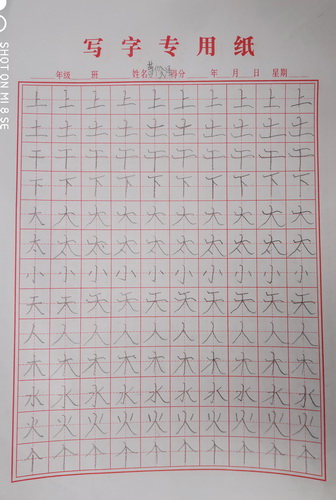 SHOT ON MI 8 SE
写字专用纸
年级 班 姓名 得分 年 月 日 星期
上 上 上 上 上 上 上 上 上 上
土 土 土 土 土 土 土 土 土 土
干 干 干 干 干 干 干 干 干 干
下 下 下 下 下 下 下 下 下 下
大 大 大 大 大 大 大 大 大 大
太 太 太 太 太 太 太 太 太 太
小 小 小 小 小 小 小 小 小 小
天 天 天 天 天 天 天 天 天 天
人 人 人 人 人 人 人 人 人 人
木 木 木 木 木 木 木 木 木 木
水 水 水 水 水 水 水 水 水 水
火 火 火 火 火 火 火 火 火 火
个 个 个 个 个 个 个 个 个 个